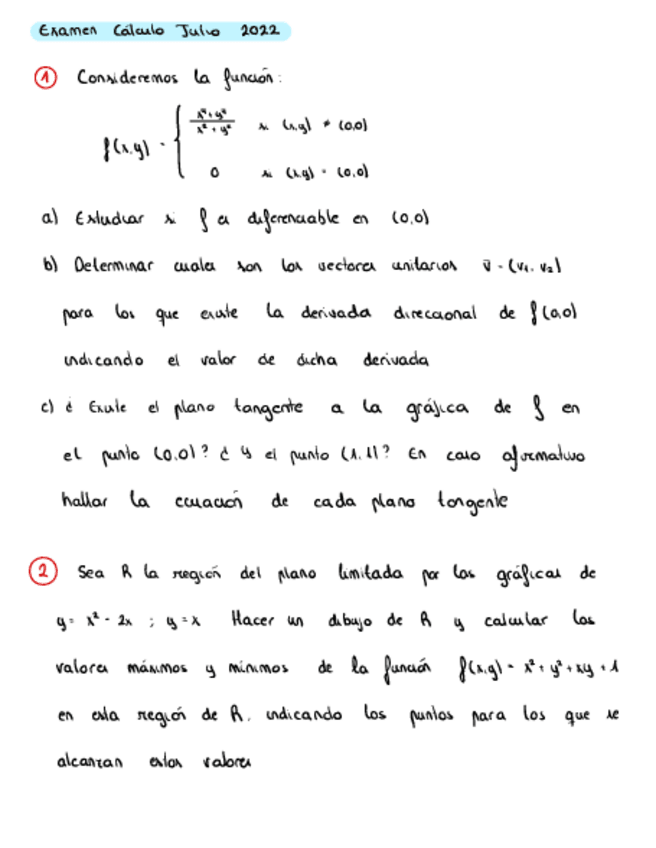 Examen Cálculo Julio 2022
1 Consideremos la función:
f(x,y) = { x⁴+y⁴ / x²+y² si (x,y) ≠ (0,0)
0 si (x,y) = (0,0)
a) Estudiar si f es diferenciable en (0,0)
b) Determinar cuales son los vectores unitarios v̄ = (v₁, v₂)
para los que existe la derivada direccional de f(0,0)
indicando el valor de dicha derivada
c) ¿ Existe el plano tangente a la gráfica de f en
el punto (0,0)? ¿ y el punto (1,1)? En caso afirmativo
hallar la ecuación de cada plano tangente
2 Sea R la región del plano limitada por las gráficas de
y = x² - 2x ; y = x Hacer un dibujo de R y calcular los
valores máximos y mínimos de la función f(x,y) = x² + y² + xy + 1
en esta región de R, indicando los puntos para los que se
alcanzan estos valores